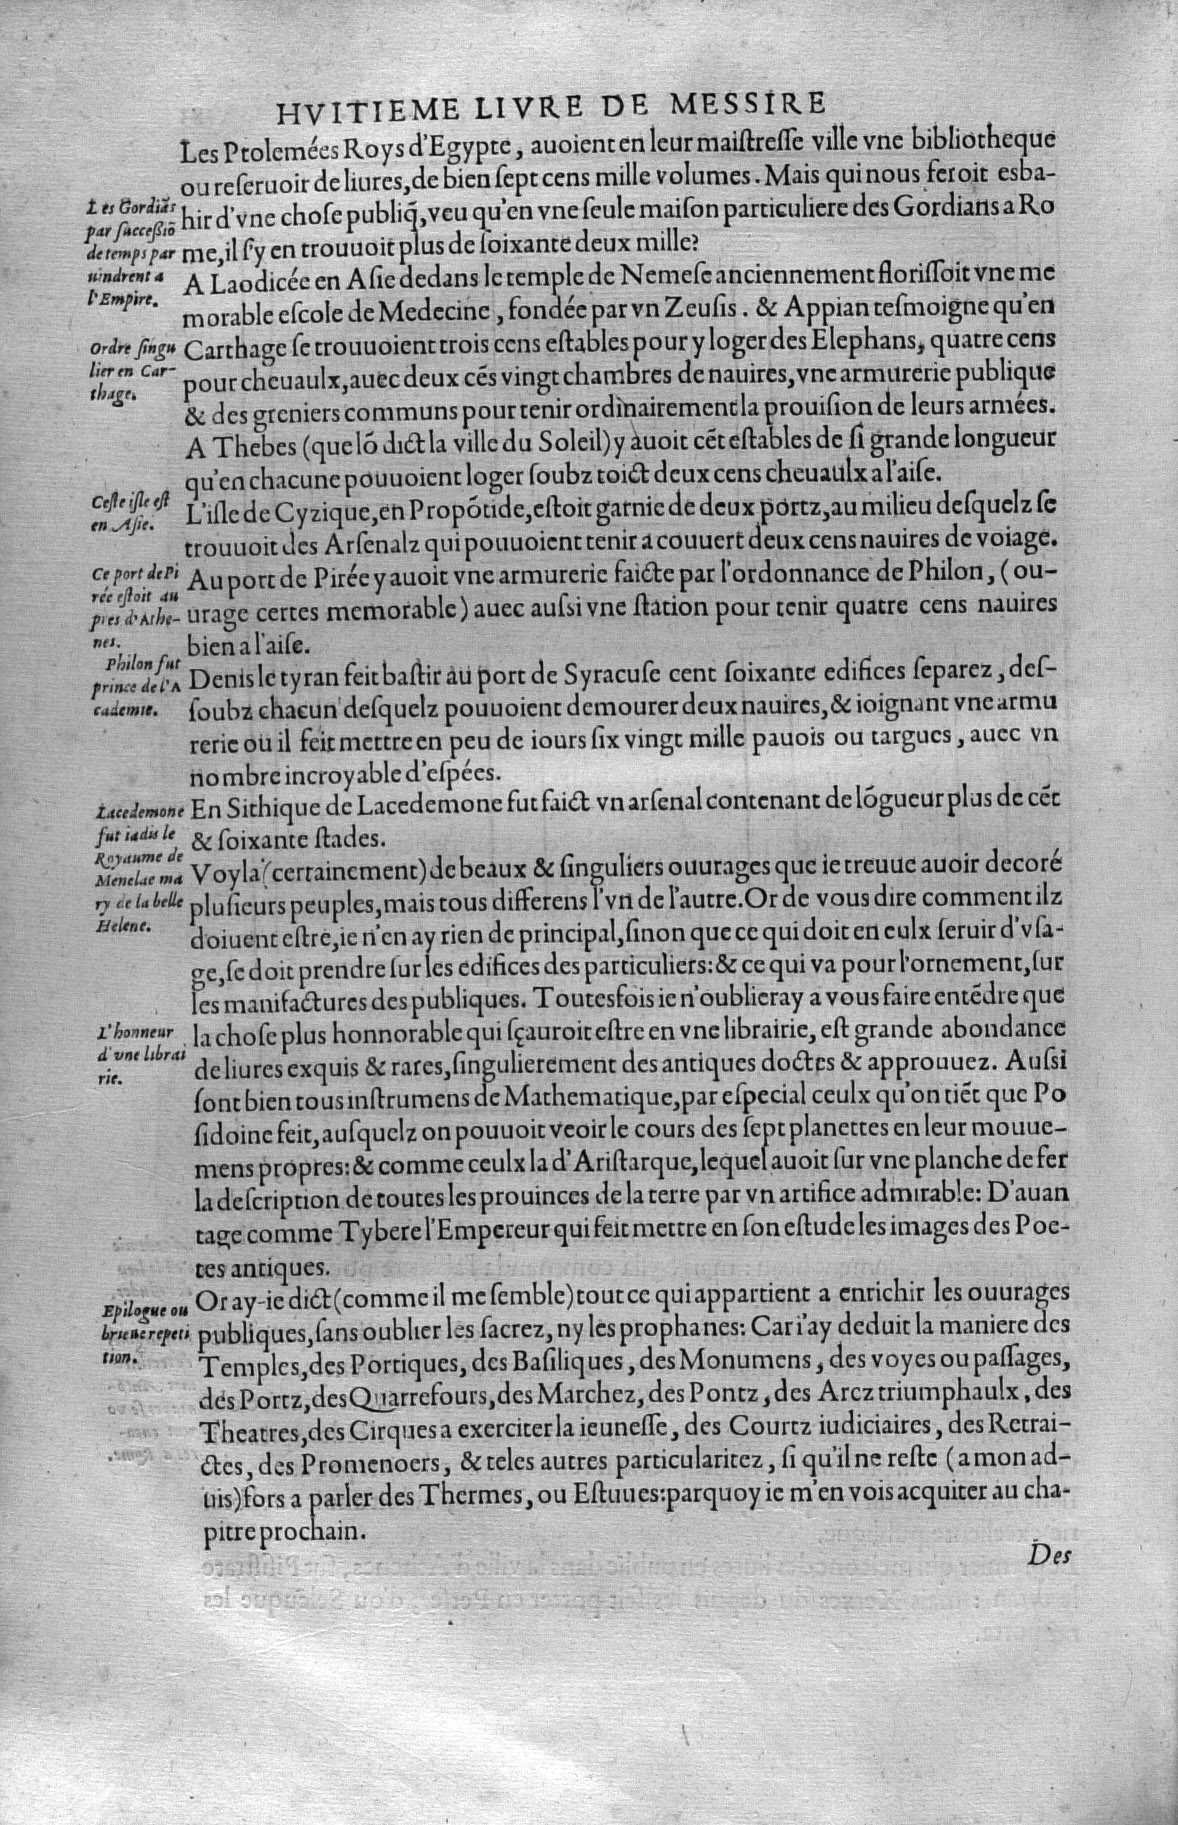 HVITIEME LIVRE DE MESSIRE
Les Ptolemées Roys d'Egypte, auoient en leur maiſtreſſe ville vne bibliotheque
ou reſeruoir de liures, de bien ſept cens mille volumes. Mais qui nous feroit esba-
hir d'vne choſe publiq̃, veu qu'en vne ſeule maiſon particuliere des Gordians a Ro
me, il ſ'y en trouuoit plus de ſoixante deux mille?
A Laodicée en Aſie dedans le temple de Nemeſe anciennement floriſſoit vne me
morable eſcole de Medecine, fondée par vn Zeuſis. & Appian teſmoigne qu'en
Carthage ſe trouuoient trois cens eſtables pour y loger des Elephans, quatre cens
pour cheuaulx, auec deux cẽs vingt chambres de nauires, vne armurerie publique
& des greniers communs pour tenir ordinairement la prouiſion de leurs armées.
A Thebes (que lõ dict la ville du Soleil) y auoit cẽt eſtables de ſi grande longueur
qu'en chacune pouuoient loger ſoubz toict deux cens cheuaulx a l'aiſe.
L'iſle de Cyzique, en Propõtide, eſtoit garnie de deux portz, au milieu deſquelz ſe
trouuoit des Arſenalz qui pouuoient tenir a couuert deux cens nauires de voiage.
Au port de Pirée y auoit vne armurerie faicte par l'ordonnance de Philon, (ou-
urage certes memorable) auec auſsi vne ſtation pour tenir quatre cens nauires
bien a l'aiſe.
Denis le tyran feit baſtir au port de Syracuſe cent ſoixante edifices ſeparez, deſ-
ſoubz chacun deſquelz pouuoient demourer deux nauires, & ioignant vne armu
rerie ou il feit mettre en peu de iours ſix vingt mille pauois ou targues, auec vn
nombre incroyable d'eſpées.
En Sithique de Lacedemone fut faict vn arſenal contenant de lõgueur plus de cẽt
& ſoixante ſtades.
Voyla (certainement) de beaux & ſinguliers ouurages que ie treuue auoir decoré
pluſieurs peuples, mais tous differens l'vn de l'autre. Or de vous dire comment ilz
doiuent eſtre, ie n'en ay rien de principal, ſinon que ce qui doit en eulx ſeruir d'vſa-
ge, ſe doit prendre ſur les edifices des particuliers: & ce qui va pour l'ornement, ſur
les manifactures des publiques. Toutesfois ie n'oublieray a vous faire entẽdre que
la choſe plus honnorable qui ſçauroit eſtre en vne librairie, eſt grande abondance
de liures exquis & rares, ſingulierement des antiques doctes & approuuez. Auſsi
ſont bien tous inſtrumens de Mathematique, par eſpecial ceulx qu'on tiẽt que Po
ſidoine feit, auſquelz on pouuoit veoir le cours des ſept planettes en leur mouue-
mens propres: & comme ceulx la d'Ariſtarque, lequel auoit ſur vne planche de fer
la deſcription de toutes les prouinces de la terre par vn artifice admirable: D'auan
tage comme Tybere l'Empereur qui feit mettre en ſon eſtude les images des Poe-
tes antiques.
Or ay-ie dict (comme il me ſemble) tout ce qui appartient a enrichir les ouurages
publiques, ſans oublier les ſacrez, ny les prophanes: Car i'ay deduit la maniere des
Temples, des Portiques, des Baſiliques, des Monumens, des voyes ou paſſages,
des Portz, des Quarrefours, des Marchez, des Pontz, des Arcz triumphaulx, des
Theatres, des Cirques a exerciter la ieuneſſe, des Courtz iudiciaires, des Retrai-
ctes, des Promenoers, & teles autres particularitez, ſi qu'il ne reſte (a mon ad-
uis) fors a parler des Thermes, ou Eſtuues: parquoy ie m'en vois acquiter au cha-
pitre prochain.
Des
Les Gordiãs
par ſucceſsiõ
de temps par
uindrent a
l'Empire.
Ordre ſingu
lier en Car-
thage.
Ceſte iſle eſt
en Aſie.
Ce port de Pi
rée eſtoit au
pres d'Athe-
nes.
Philon fut
prince de l'A
cademie.
Lacedemone
fut iadis le
Royaume de
Menelae ma
ry de la belle
Helene.
L'honneur
d'vne librai
rie.
Epilogue ou
brieue repeti
tion.